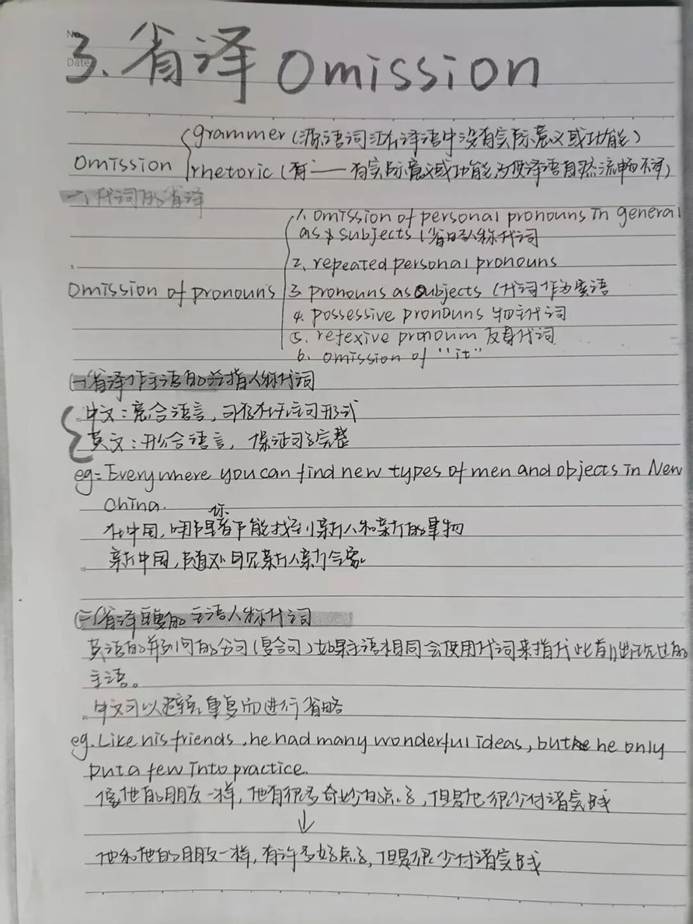 No.
Date
3. 省译 Omission
Omission
grammer (源语词汇在译语中没有实际意义或功能)
rhetoric (有一一有实际意义或功能,为使译语自然流畅不译)
一、代词的省译
Omission of pronouns
1. Omission of personal pronouns in general
as subjects (省略人称代词
2. repeated personal pronouns
3 pronouns as objects (代词作为宾语
4. possessive pronouns 物主代词
5. refexive pronoum 反身代词
6. omission of "it"
(一)省译作主语的泛指人称代词
中文:意合语言,可存在无主句形式
英文:形合语言,保证句子完整
eg: Everywhere you can find new types of men and objects in New
China.
在中国,你哪里都能找到新人和新的事物
新中国,随处可见新人新气象
(二)省译重复的主语人称代词
英语的并列句的分句(复合句)如果主语相同会使用代词来指代此前出现过的
主语。
中文可以避免重复而进行省略
eg. Like his friends, he had many wonderful ideas, but he only
put a few into practice.
像他的朋友一样,他有很多奇妙的点子,但是他很少付诸实践
↓
他和他的朋友一样,有许多好点子,但是很少付诸实践